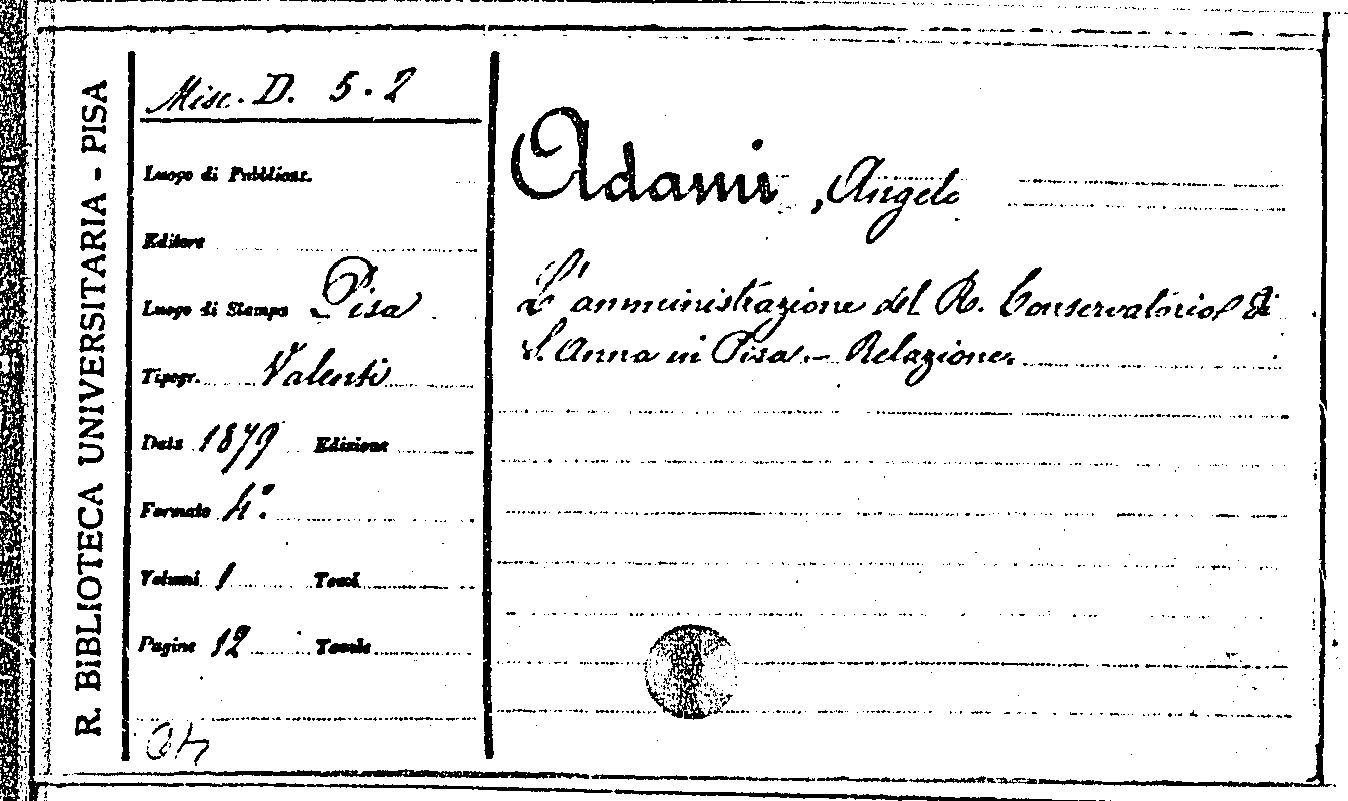 R. BIBLIOTECA UNIVERSITARIA - PISA
Misc. D. 5. 2
Luogo di Pubblicaz.
Editore
Luogo di Stampa Pisa
Tipogr. Valenti
Data 1879 Edizione
Formato 4°.
Volumi 1 Tomi
Pagine 12 Tavole
Adami, Angelo
L'amministrazione del R. Conservatorio di
S. Anna in Pisa. - Relazione.